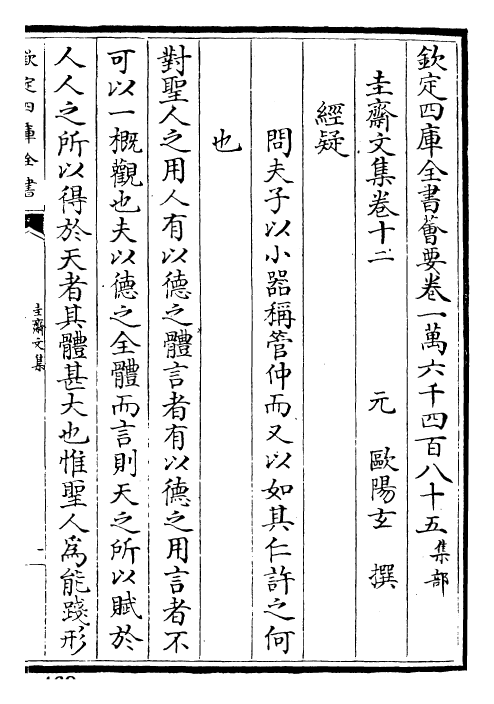 欽定四庫全書薈要卷一萬六千四百八十五集部
圭齋文集卷十二
元 歐陽玄 撰
經疑
問夫子以小器稱管仲而又以如其仁許之何
也
對聖人之用人有以德之體言者有以德之用言者不
可以一概觀也夫以德之全體而言則天之所以賦於
人人之所以得於天者其體甚大也惟聖人爲能踐形
欽定四庫全書
圭齋文集